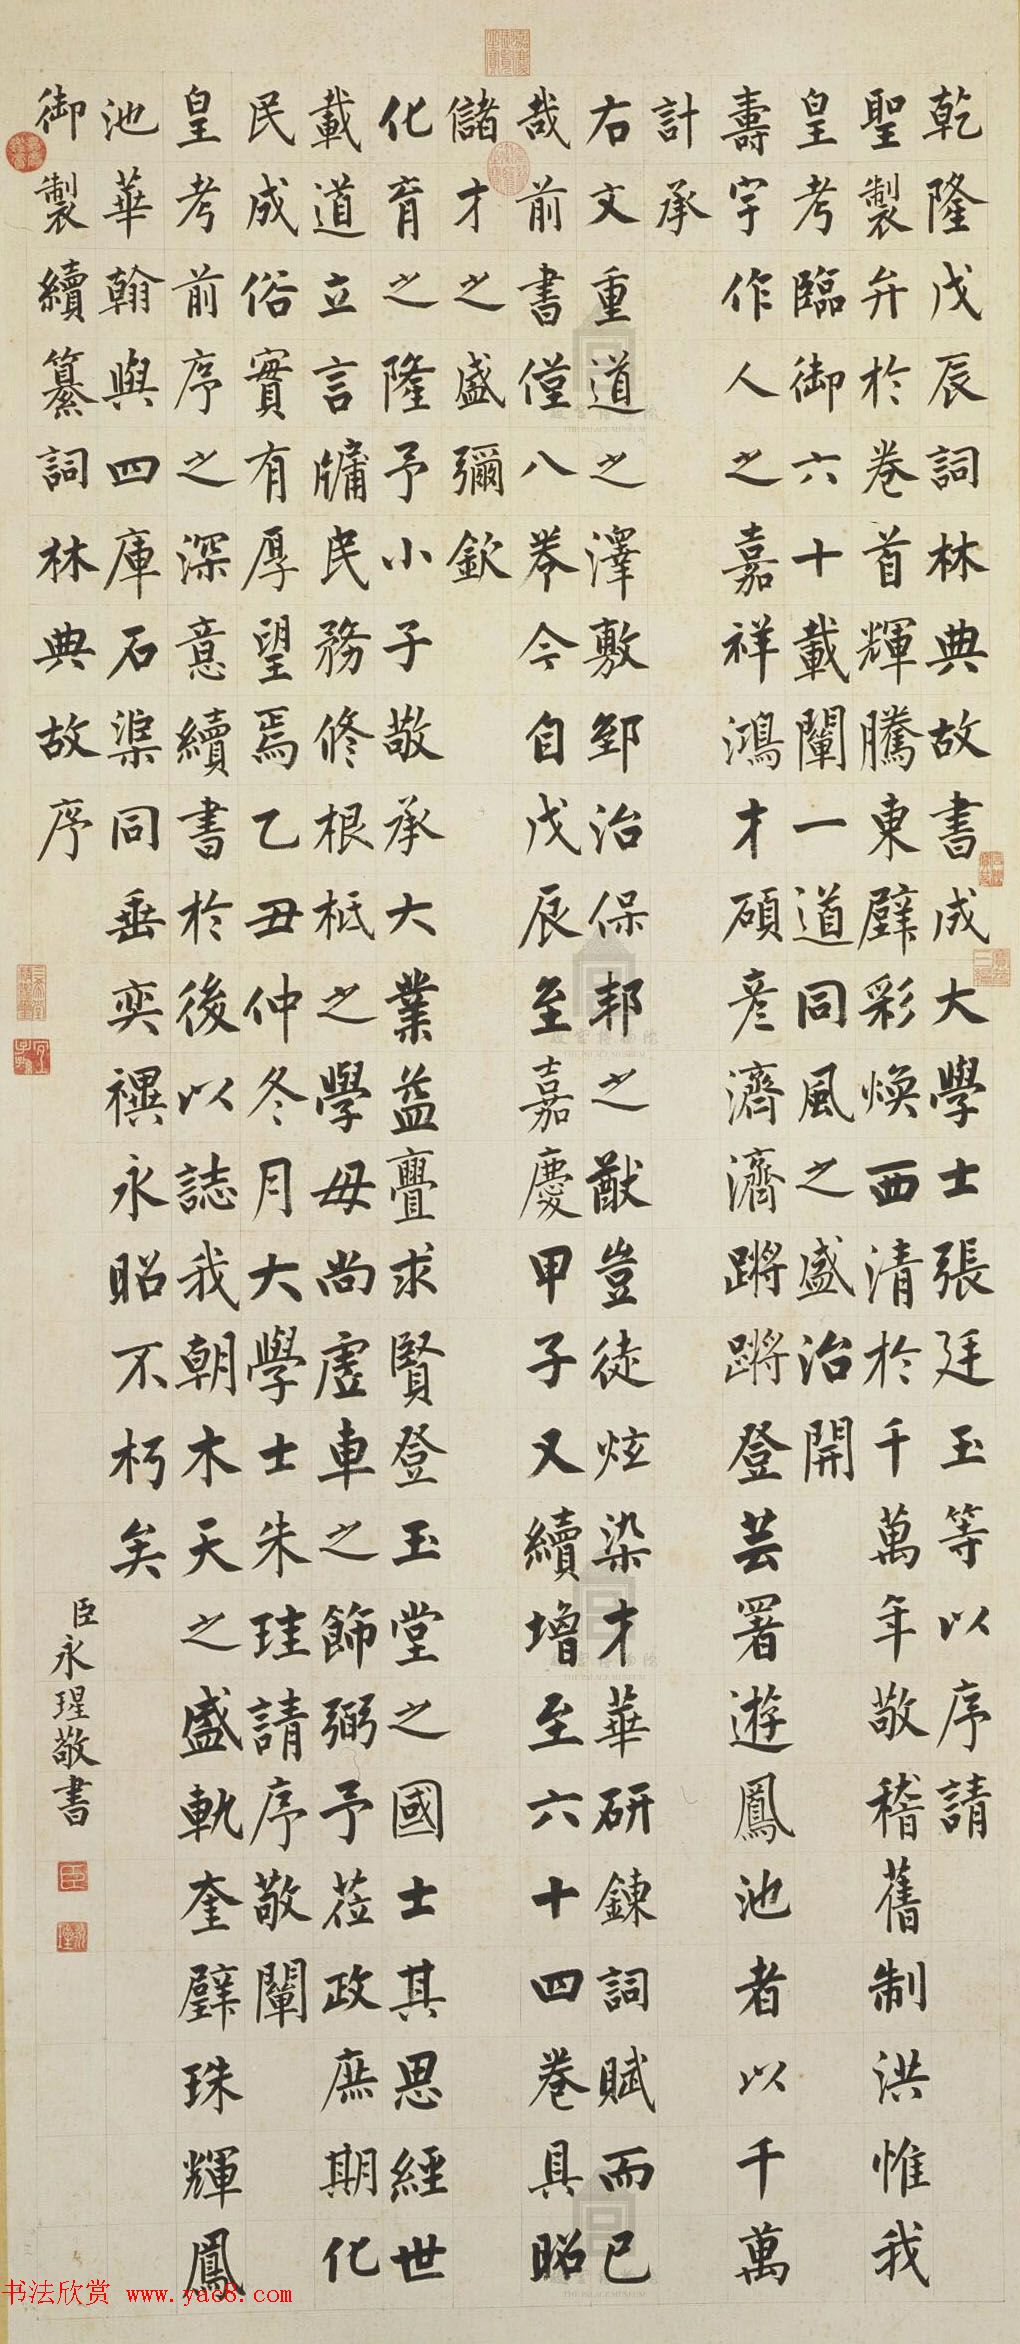 乾隆戊辰詞林典故書成大學士張廷玉等以序請
聖製弁於卷首輝騰東壁彩煥西清於千萬年敬稽舊制洪惟我
皇考臨御六十載闡一道同風之盛治開
壽宇作人之嘉祥鴻才碩彥濟濟蹡蹡登芸署遊鳳池者以千萬
計承
右文重道之澤敷郅治保邦之猷豈徒炫染才華研鍊詞賦而已
哉前書僅八卷今自戊辰至嘉慶甲子又續增至六十四卷具昭
儲才之盛彌欽
化育之隆予小子敬承大業益亹求賢登玉堂之國士其思經世
載道立言牖民務修根柢之學毋尚虛車之飾弼予莅政庶期化
民成俗實有厚望焉乙丑仲冬月大學士朱珪請序敬闡
皇考前序之深意續書於後以誌我朝木天之盛軌奎璧珠輝鳳
池華翰與四庫石渠同垂奕禩永昭不朽矣
御製續纂詞林典故序
臣永瑆敬書
书法欣赏 www.yac8.com